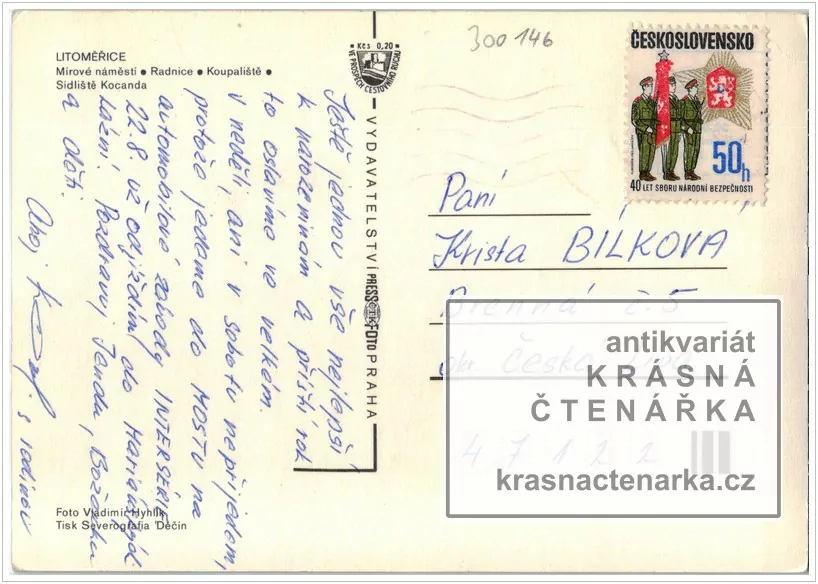 LITOMĚŘICE
Mírové náměstí • Radnice • Koupaliště •
Sídliště Kocanda
Kčs 0,20
VE PROSPĚCH CESTOVNÍHO RUCHU
300 146
ČESKOSLOVENSKO
50h
40 LET SBORU NÁRODNÍ BEZPEČNOSTI
Ještě jednou vše nejlepší
k narozeninám a příští rok
to oslavíme ve velkém.
V neděli, ani v sobotu nepřijedem,
protože jedeme do MOSTU na
automobilové závody INTERSÉRIE
22.8. už odjíždím do Mariánských
Lázní. Pozdravuj Jendu, Boženku
a děti.
Ahoj
s rodinou
VYDAVATELSTVÍ PRESSFOTO PRAHA
ČTK
Paní
Krista BILKOVA
Brenná č. 5
okr. Česká Lípa
47122
antikvariát
KRÁSNÁ
ČTENÁŘKA
krasnactenarka.cz
Foto Vladimír Hyhlík
Tisk Severografia Děčín